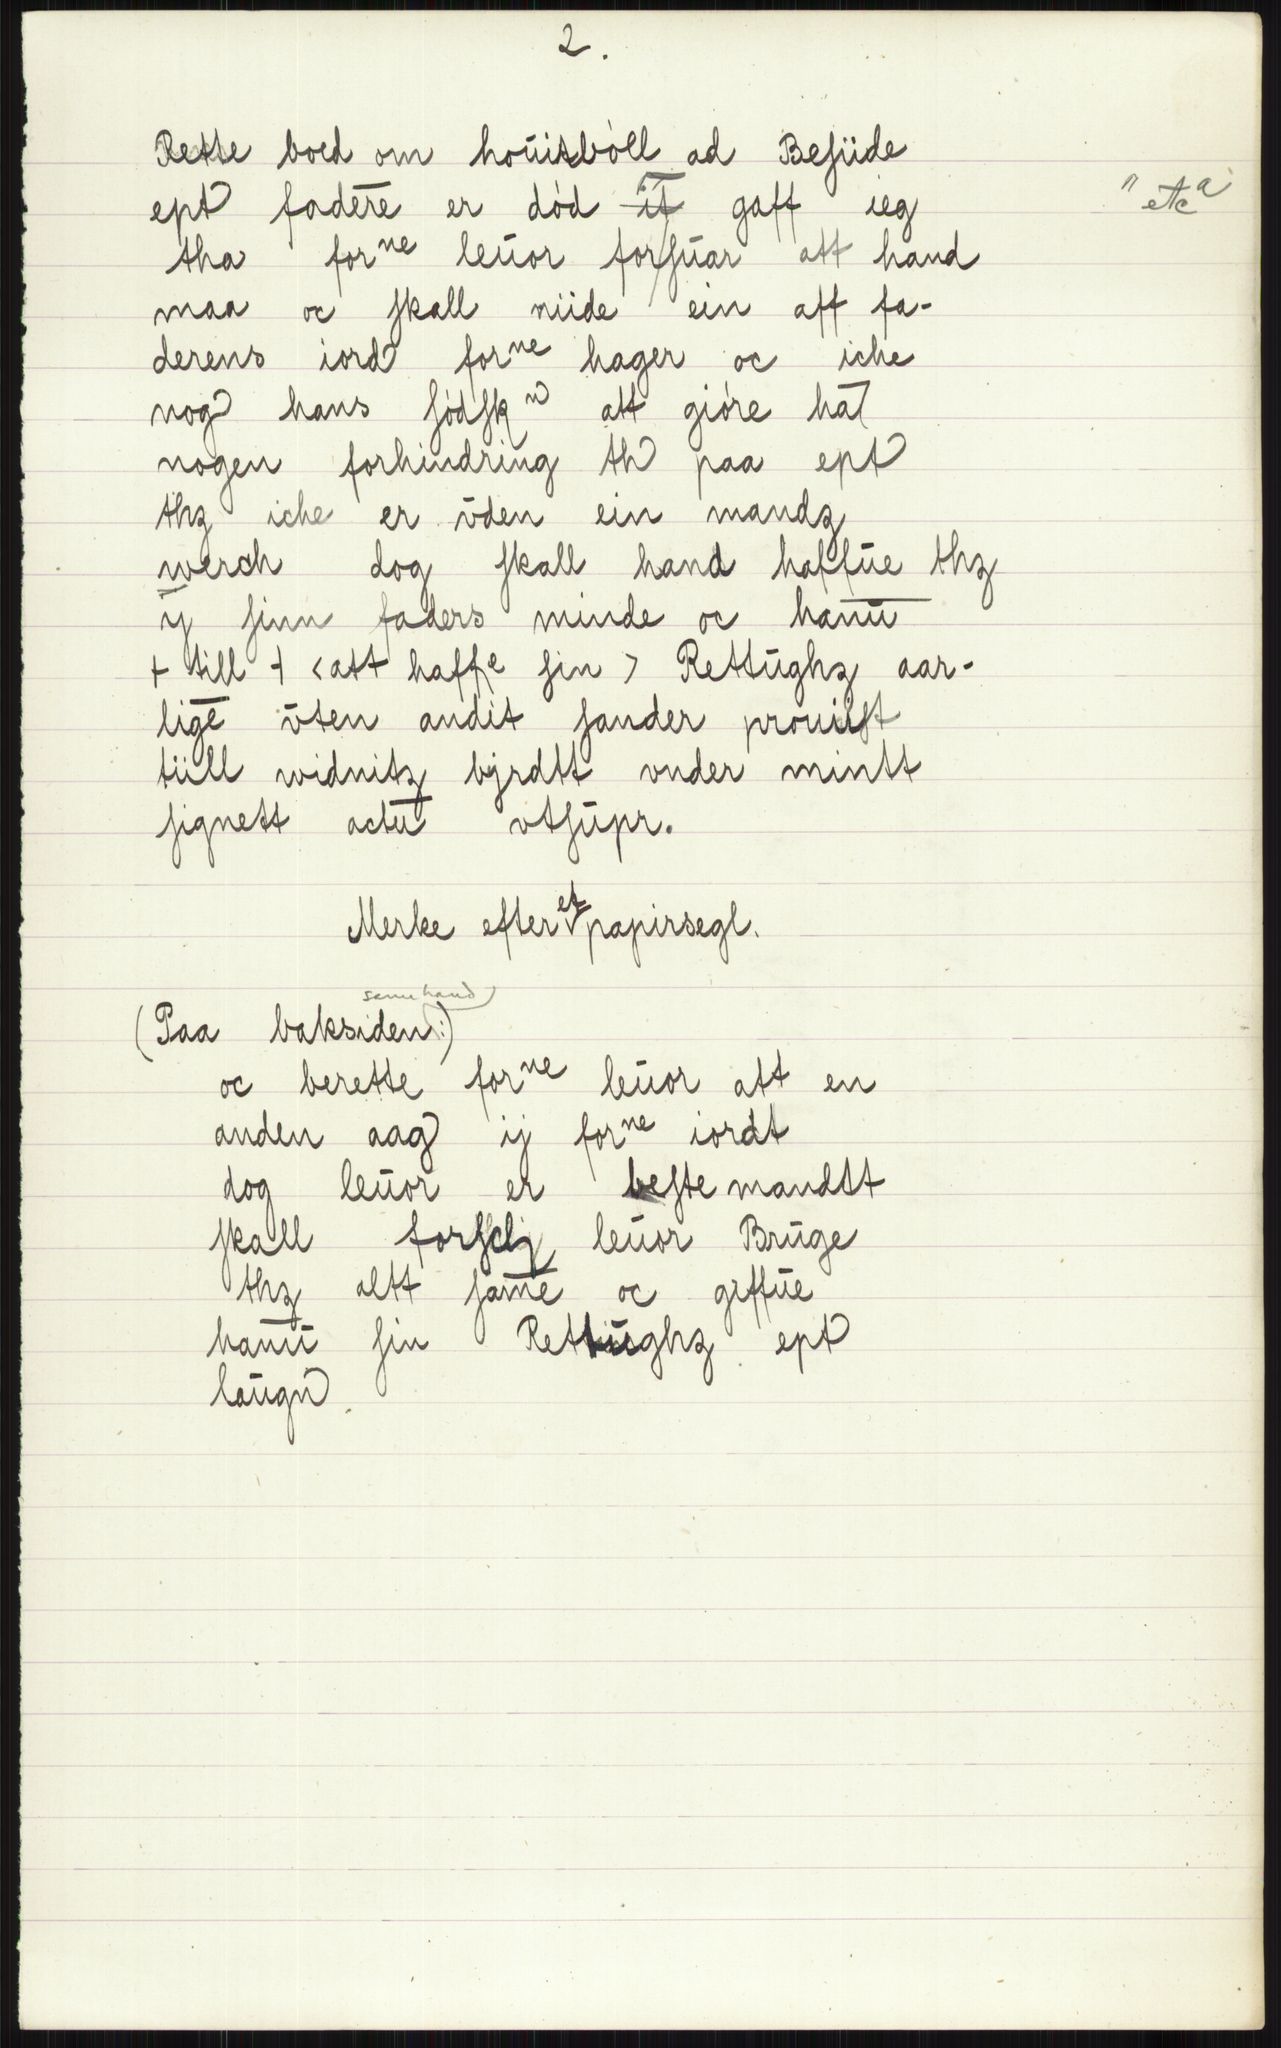 2.
Rette boed om houitbóll ad Besüde
ept faderē er dód it̅ gaff ieg
" etc a
tha forⁿᵉ leūor forsūar att hand
maa oc skall niide ein aff fa-
derens iord forⁿᵉ hager oc iche
nog hans sódskⁿ att gióre ha̅
nogen forhindring th paa ept
thz iche er v̄den ein mandz
werch dog skall hand haffūe thz
ij sinn faders minde oc hanū
+ till + <att haffe sin> Rettūghz aar-
ligē v̄ten andit sander prouist
tiill widnitz bÿrdtt vnder mintt
signett actū vtsūpr.
Merke efter et papirsegl.
samme hand
(Paa baksiden:)
oc berette forⁿᵉ leūor att en
anden aag ij forⁿᵉ iordt
dog leūor er beste mandtt
skall forsclj leūor Brūge
thz altt samē oc giffūe
hanū sin Rettūghz ept
laugn